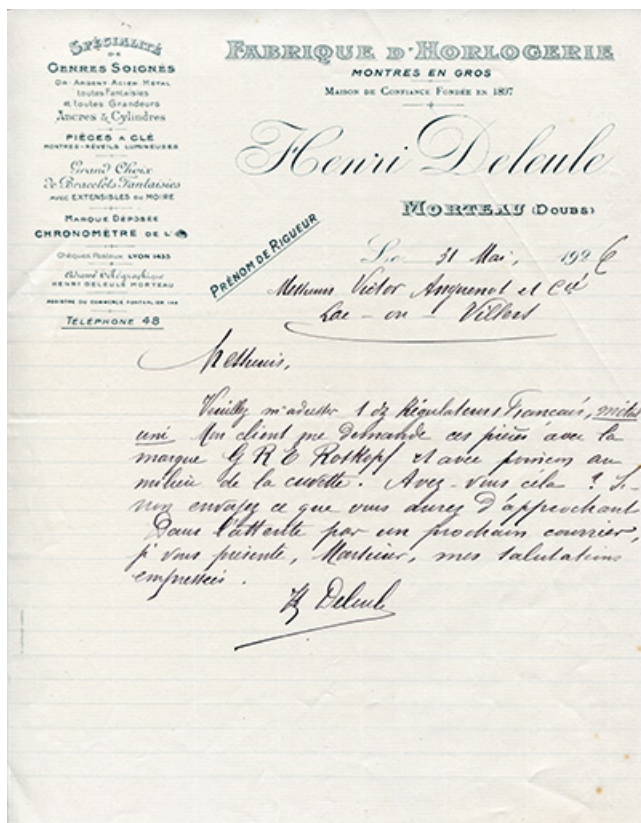 SPÉCIALITÉ
DE
GENRES SOIGNÉS
OR - ARGENT - ACIER - METAL
toutes Fantaisies
et toutes Grandeurs
Ancres & Cylindres
PIÈCES A CLÉ
MONTRES-RÉVEILS LUMINEUSES
Grand Choix
de Bracelets Fantaisies
AVEC EXTENSIBLES OU MOIRE
MARQUE DÉPOSÉE
CHRONOMÈTRE DE L'
Chèques Postaux LYON 1455
Adresse Télégraphique
HENRI DELEULE MORTEAU
REGISTRE DU COMMERCE PONTARLIER
TÉLÉPHONE 48
FABRIQUE D'HORLOGERIE
MONTRES EN GROS
MAISON DE CONFIANCE FONDÉE EN 1897
Henri Deleule
MORTEAU (DOUBS)
PRÉNOM DE RIGUEUR
Le 31 Mai, 1926
Messieurs Victor Anguenot et Cie
Lac - ou - Villers
Messieurs,
Veuillez m'adresser 1 dz Régulateurs Français, métal
uni Mon client me demande ces pièces avec la
marque G R E Roskopf et avec au
milieu de la cuvette. Avez-vous cela ? Si-
non envoyez ce que vous aurez d'approchant
Dans l'attente par un prochain courrier,
je vous présente, Messieurs, mes salutations
empressées.
H Deleule